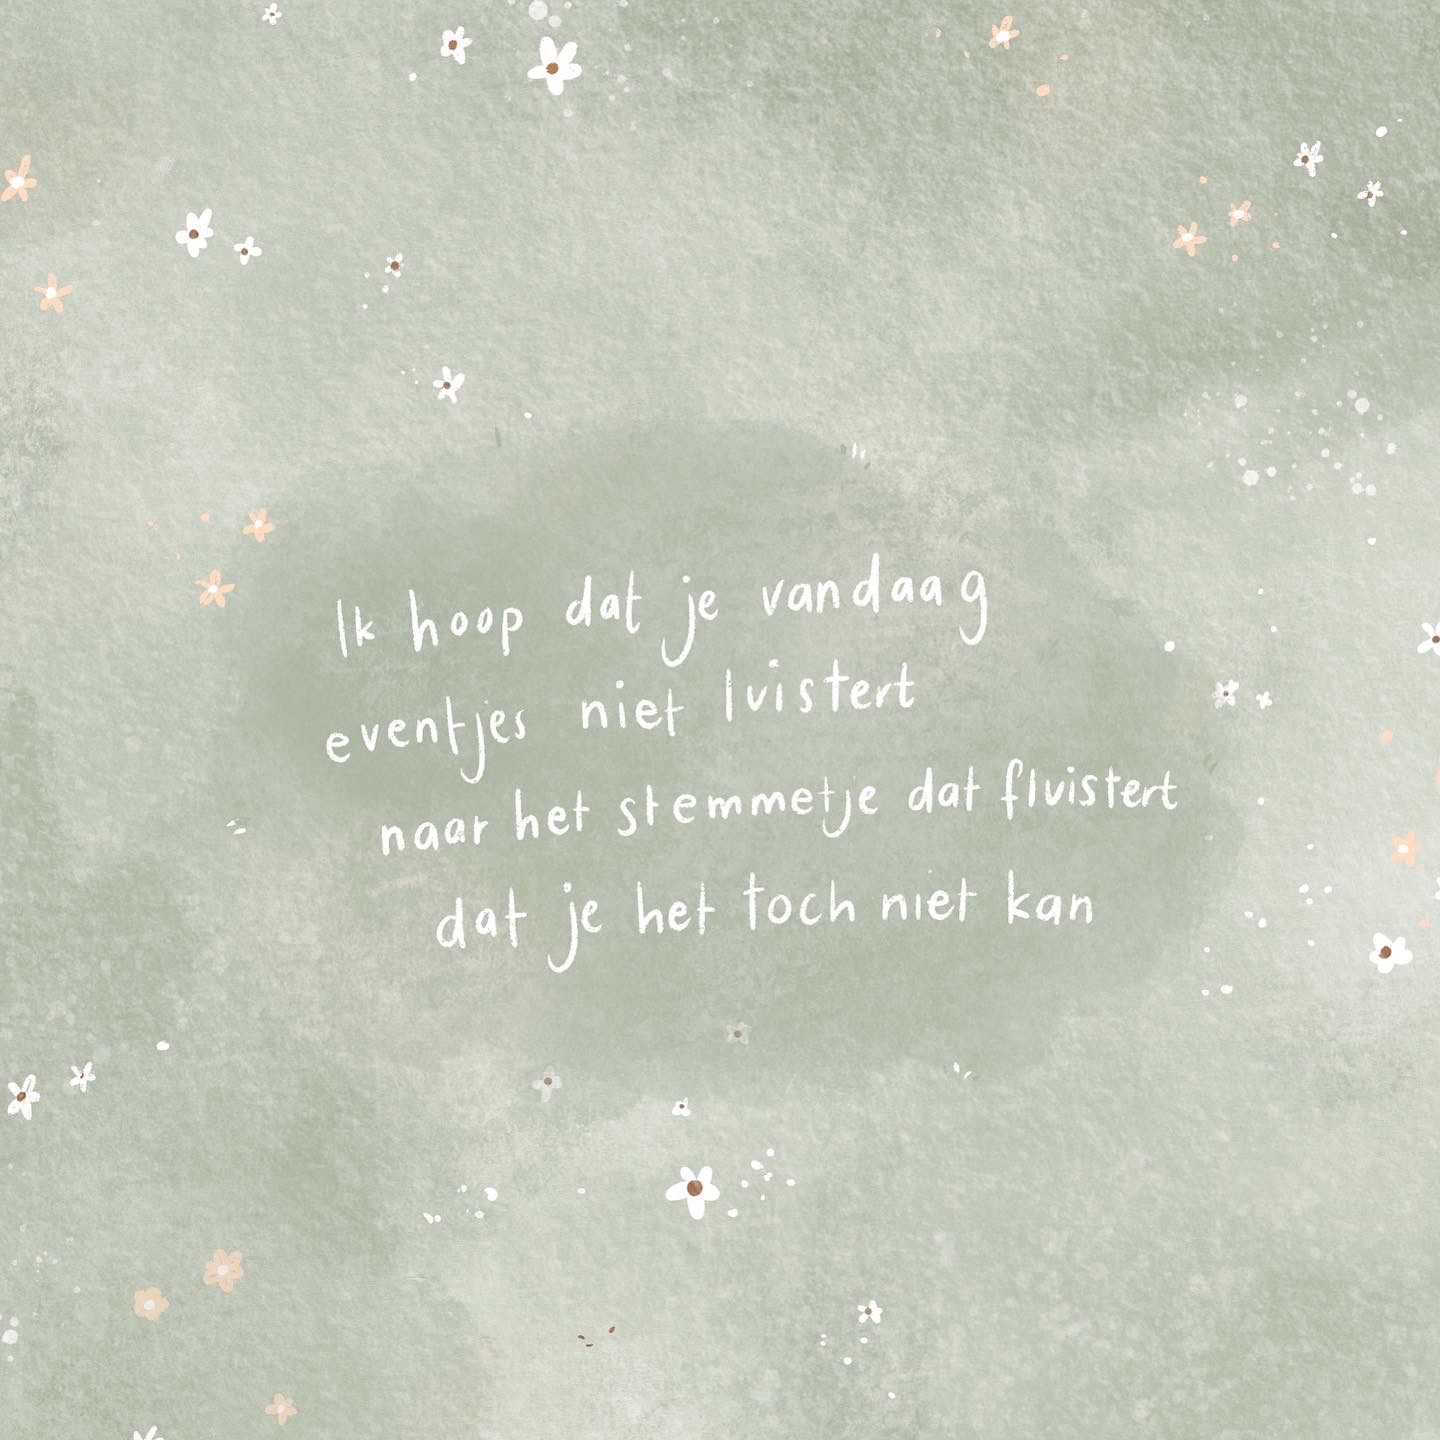 Ik hoop dat je vandaag
eventjes niet luistert
naar het stemmetje dat fluistert
dat je het toch niet kan